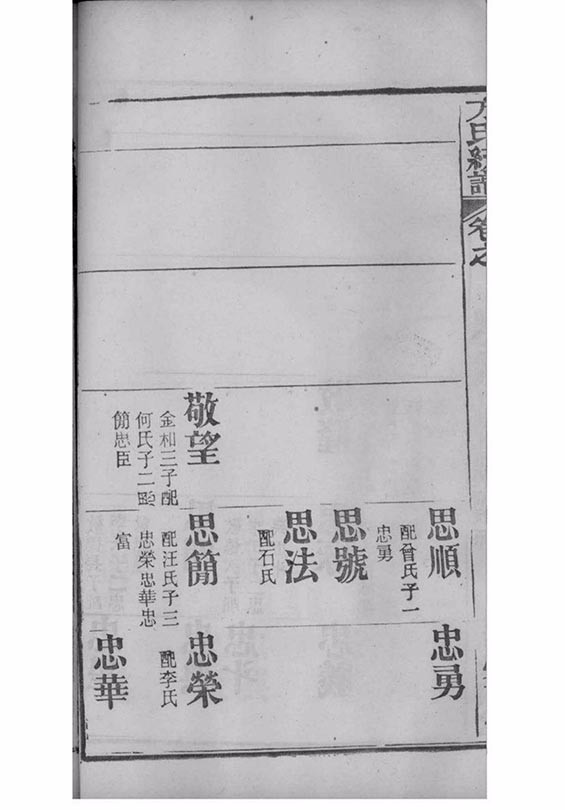 方氏統譜
卷之
敬望
金和三子配
何氏子二思
簡忠臣
思順
配曾氏子一
忠勇
思號
思法
配石氏
思簡
配汪氏子三
忠榮忠華忠
富
忠勇
忠榮
配李氏
忠華